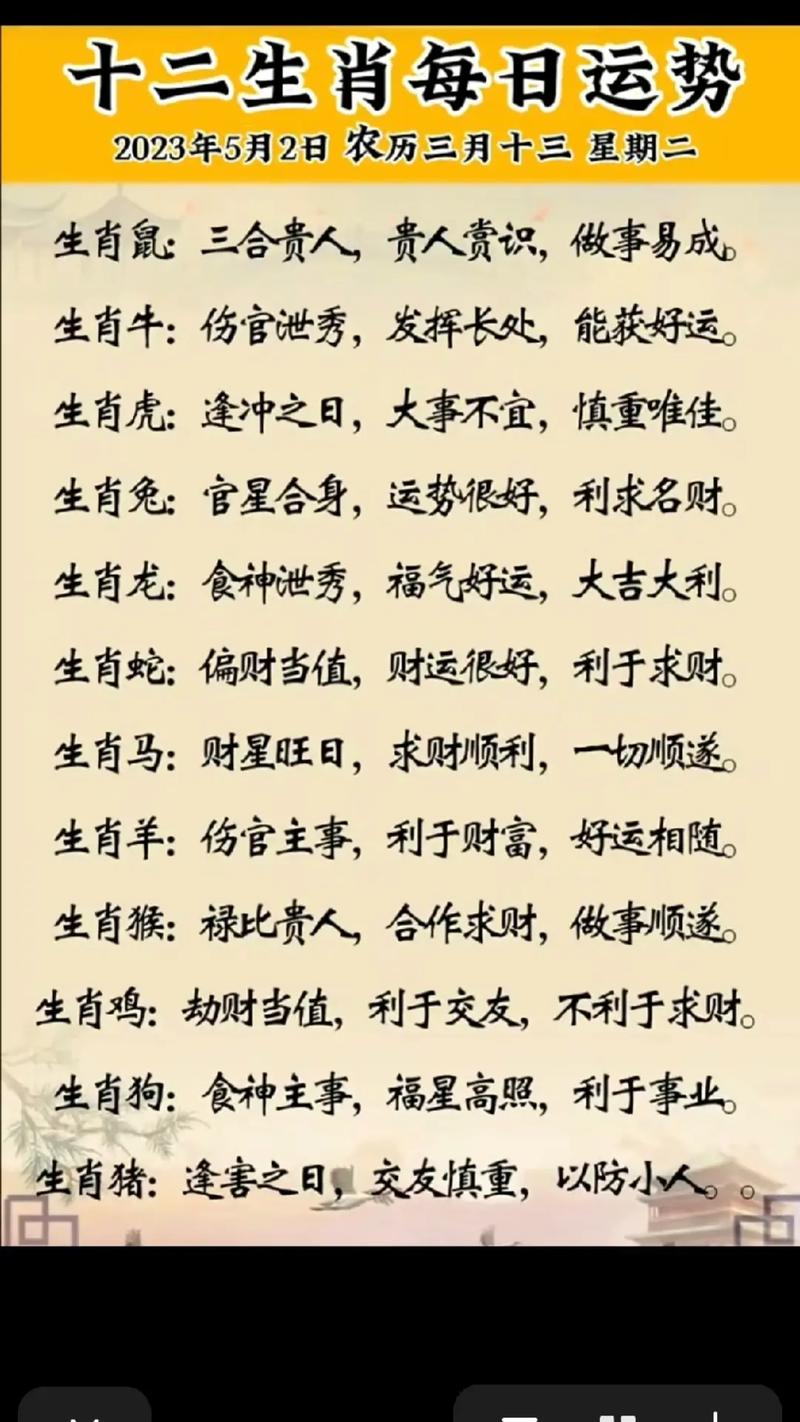 十二生肖每日运势
2023年5月2日 农历三月十三 星期二
生肖鼠：三合贵人，贵人赏识，做事易成。
生肖牛：伤官泄秀，发挥长处，能获好运。
生肖虎：逢冲之日，大事不宜，慎重唯佳。
生肖兔：官星合身，运势很好，利求名财。
生肖龙：食神泄秀，福气好运，大吉大利。
生肖蛇：偏财当值，财运很好，利于求财。
生肖马：财星旺日，求财顺利，一切顺遂。
生肖羊：伤官主事，利于财富，好运相随。
生肖猴：禄比贵人，合作求财，做事顺遂。
生肖鸡：劫财当值，利于交友，不利于求财。
生肖狗：食神主事，福星高照，利于事业。
生肖猪：逢害之日，交友慎重，以防小人。。